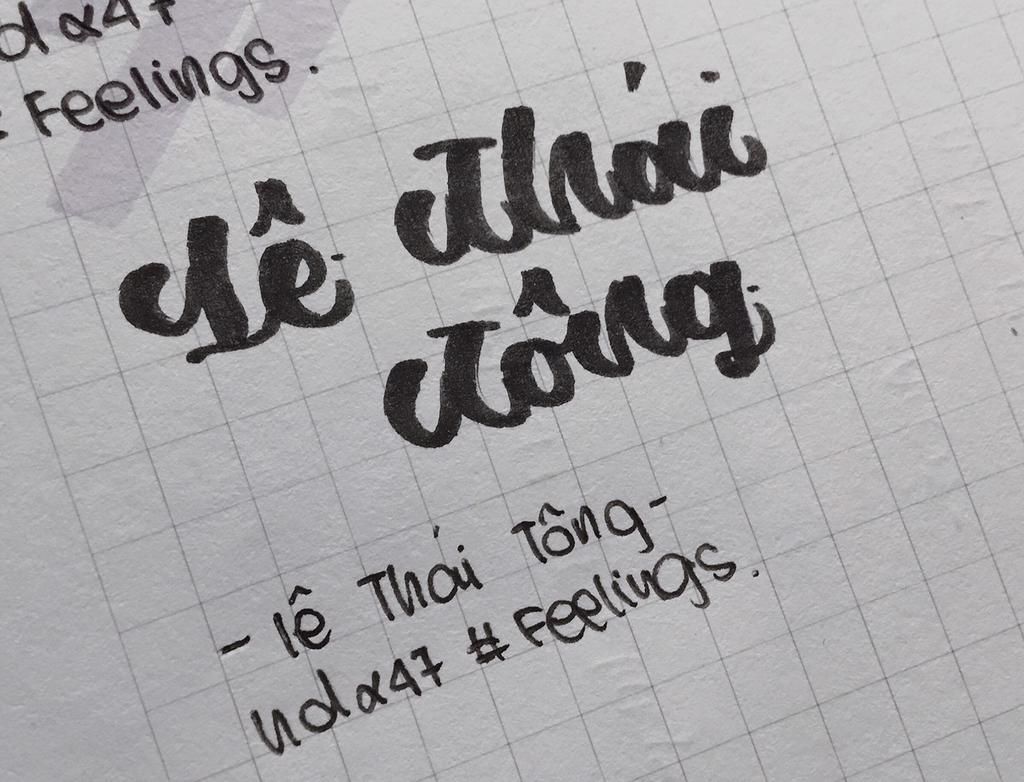 ndα47
# Feelings.
Lê Thái
Tông
- lê Thái Tông -
ndα47 # Feelings.